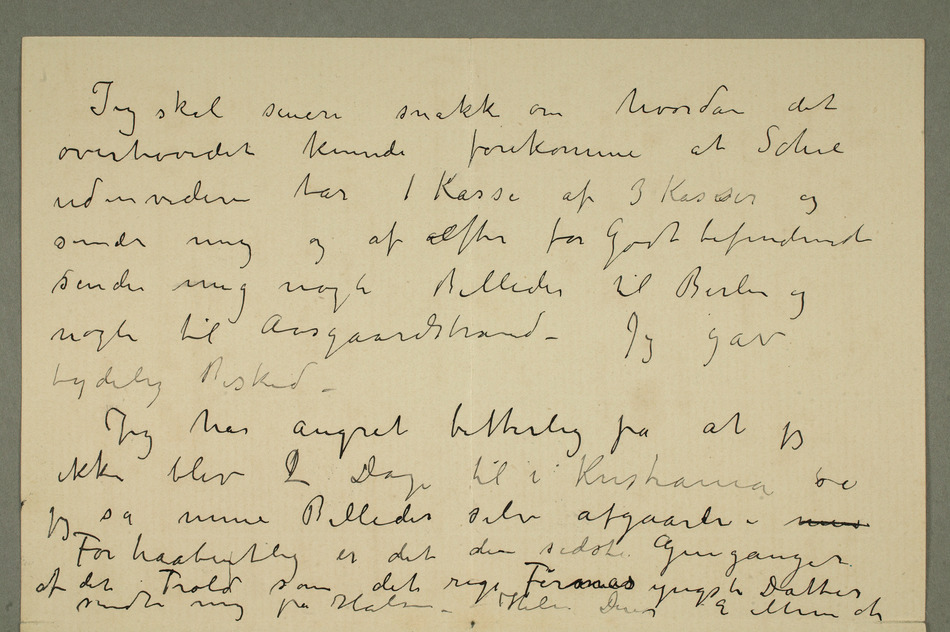 Jeg skal senere snakke om hvordan det
overhovedet kunde forekomme at Schu
udenvidere tar 1 Kasse af 3 Kasser og
sender mig og af efter for Godt befindende
sender mig nogle Billeder til Berlin og
nogle til Aasgaardstrand – Jeg gav
tydelig Besked –
Jeg har angret bitterlig på at jeg
ikke blev 2 Dage til i Kristiania
jeg så mine Billeder selv afgaarde –
Forhaabentlig er det den sidste Gjenganger
af det Trold som det rige Firmas yngste Datter
sendte mig på Halsen – Hilsen Deres E Munch